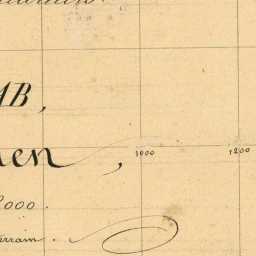 AB,
nen,
1000 1200
000.
terrain.